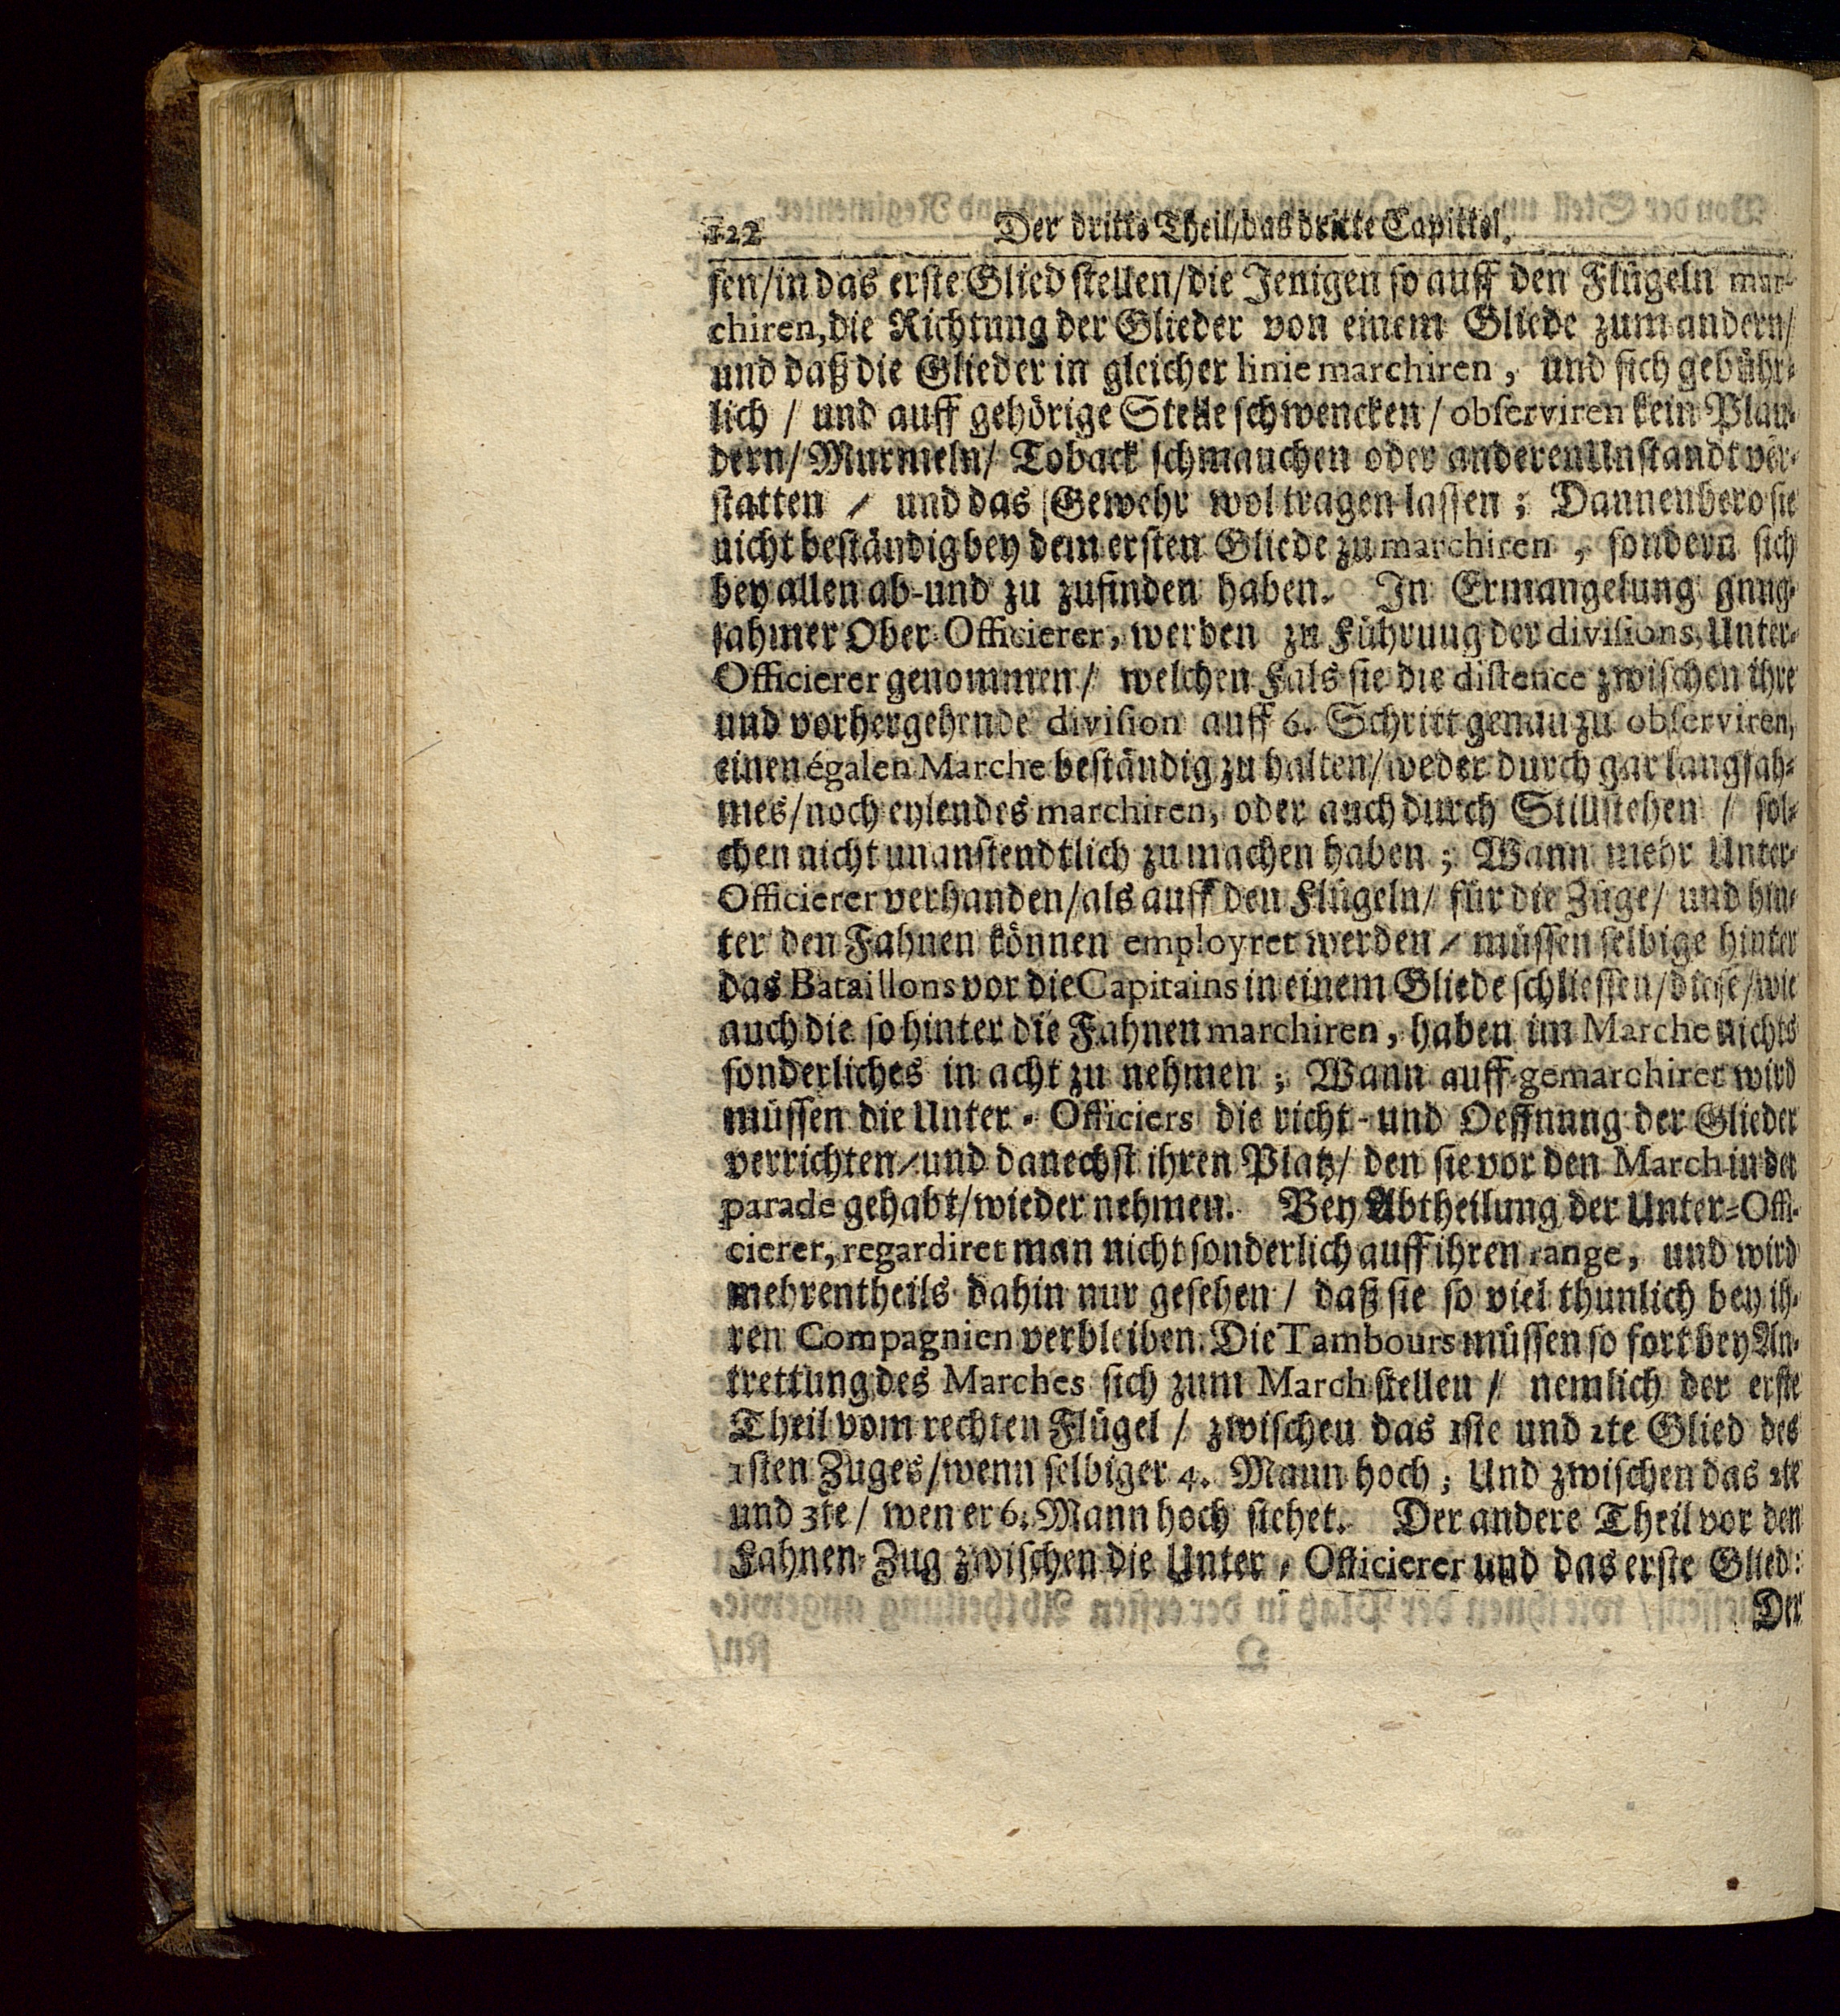 122 Der dritte Theil/das dritte Capittel.
sen/in das erste Glied stellen/die Jenigen so auff den Flügeln mar-
chiren, die Richtung der Glieder von einem Gliede zum andern/
und daß die Glieder in gleicher linie marchiren, und sich gebühr-
lich / und auff gehörige Stelle schwencken / observiren kein Plau-
dern/ Murmeln/ Toback schmauchen oder anderen Unstandt ver-
statten / und das Gewehr wol tragen lassen; Dannenhero sie
nicht beständig bey dem ersten Gliede zu marchiren, sondern sich
bey allen ab-und zu zufinden haben. In Ermangelung gnug-
sahmer Ober-Officierer, werden zu Führung der divisions, Unter-
Officierer genommen/ welchen Fals sie die distence zwischen ihre
und vorhergehende division auff 6. Schritt genau zu observiren,
einen égalen Marche beständig zu halten/weder durch gar langsah-
mes/noch eylendes marchiren, oder auch durch Stillstehen / sol-
chen nicht unanstendtlich zu machen haben; Wann mehr Unter-
Officierer verhanden/als auff den Flügeln/ für die Züge/ und hin-
ter den Fahnen können employret werden / müssen selbige hinter
das Bataillons vor die Capitains in einem Gliede schliessen/diese/wie
auch die so hinter die Fahnen marchiren, haben im Marche nichts
sonderliches in acht zu nehmen; Wann auff-gemarchiret wird
müssen die Unter-Officiers die richt-und Oeffnung der Glieder
verrichten/und danechst ihren Platz/ den sie vor den March in der
parade gehabt/wieder nehmen. Bey Abtheilung der Unter-Offi-
cierer, regardiret man nicht sonderlich auff ihren range, und wird
mehrentheils dahin nur gesehen / daß sie so viel thunlich bey ih-
ren Compagnien verbleiben. Die Tambours müssen so fort bey An-
trettung des Marches sich zum March stellen / nemlich der erste
Theil vom rechten Flügel / zwischen das 1ste und 2te Glied des
1sten Zuges/wenn selbiger 4. Mann hoch; Und zwischen das 2te
und 3te / wen er 6. Mann hoch stehet. Der andere Theil vor den
Fahnen-Zug zwischen die Unter-Officierer und das erste Glied:
Der